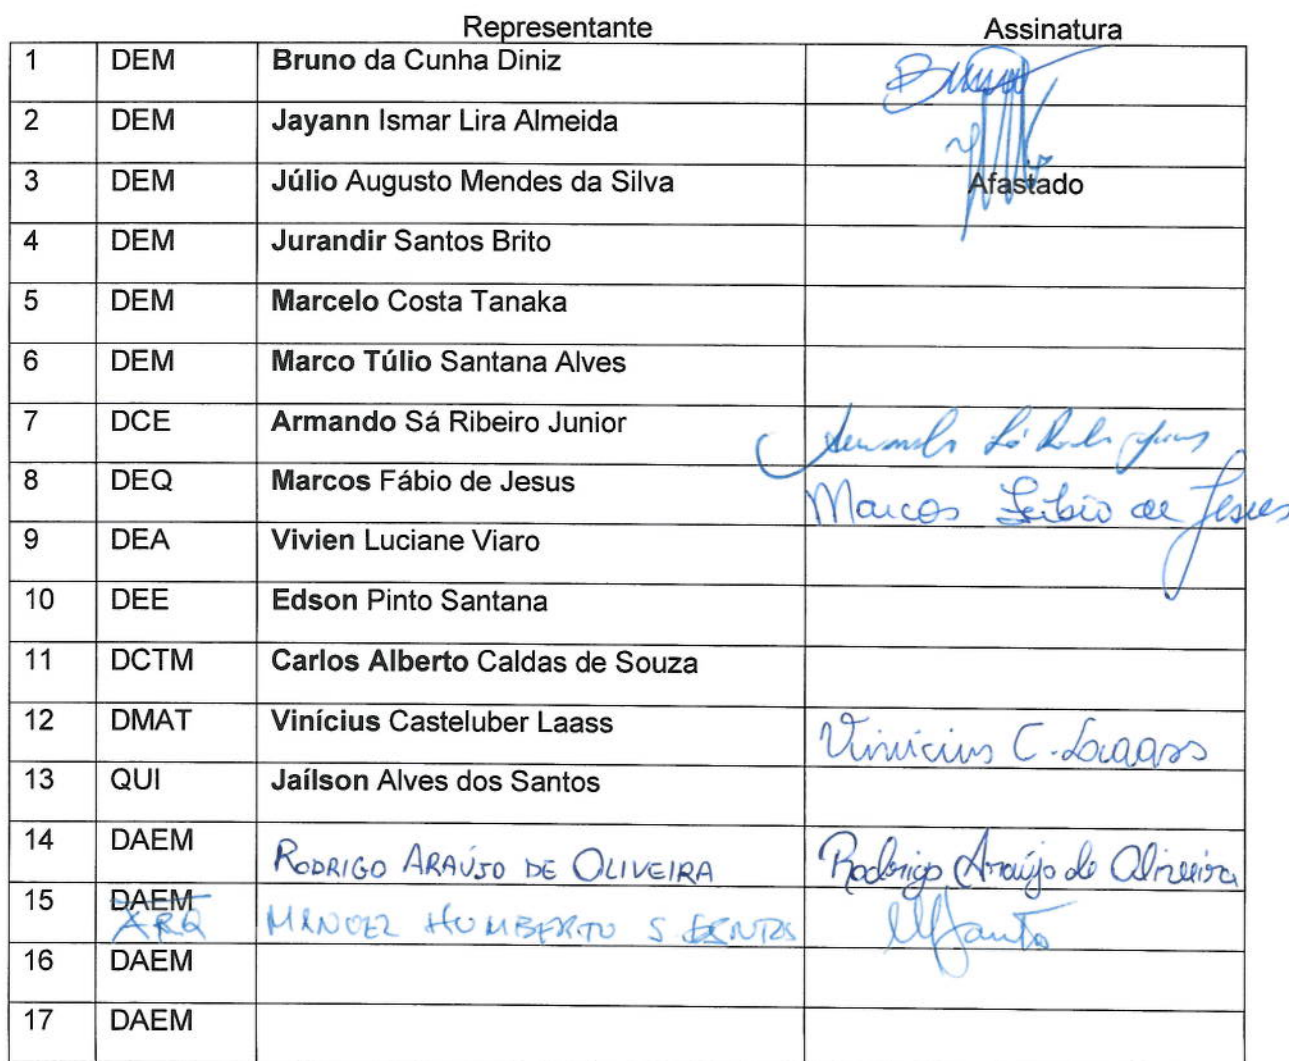 Representante Assinatura
1 DEM Bruno da Cunha Diniz Bruno
2 DEM Jayann Ismar Lira Almeida
3 DEM Júlio Augusto Mendes da Silva Afastado
4 DEM Jurandir Santos Brito
5 DEM Marcelo Costa Tanaka
6 DEM Marco Túlio Santana Alves
7 DCE Armando Sá Ribeiro Junior
8 DEQ Marcos Fábio de Jesus Marcos Fábio de Jesus
9 DEA Vivien Luciane Viaro
10 DEE Edson Pinto Santana
11 DCTM Carlos Alberto Caldas de Souza
12 DMAT Vinícius Casteluber Laass Vinícius C. Laass
13 QUI Jaílson Alves dos Santos
14 DAEM RODRIGO ARAÚJO DE OLIVEIRA Rodrigo Araújo de Oliveira
15 DAEM
ARQ MANOEL HUMBERTO S
16 DAEM
17 DAEM